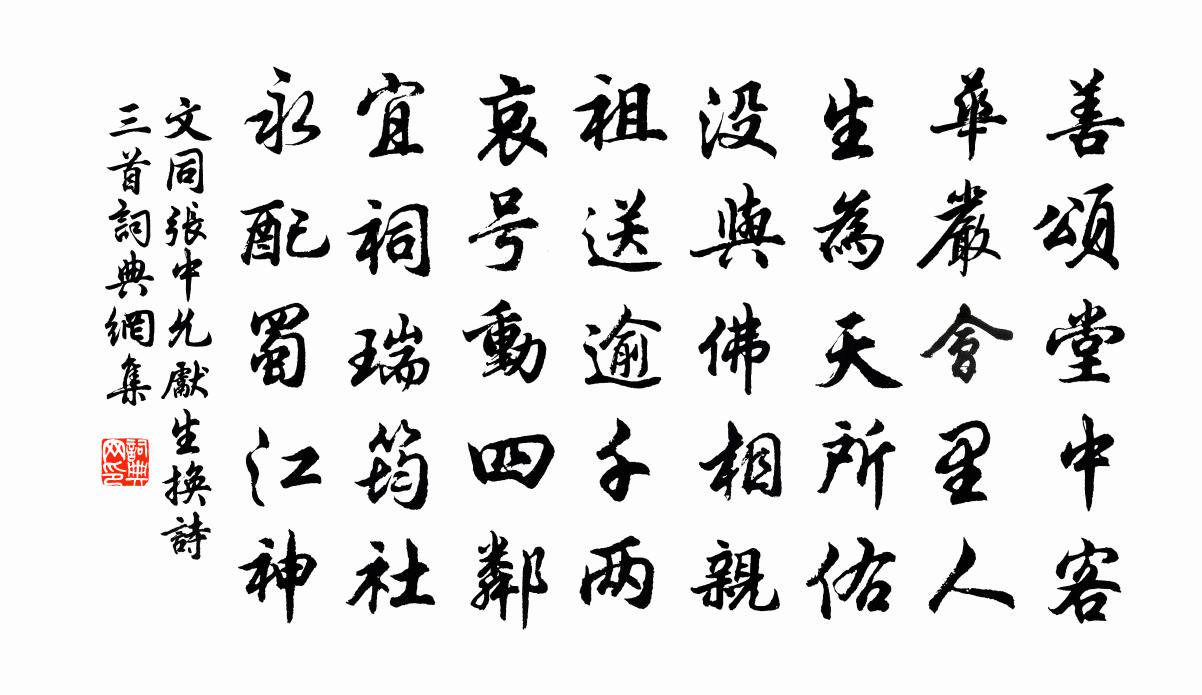 善頌堂中客
華嚴會里人
生為天所佑
没與佛相親
祖送逾千两
哀号動四鄰
宜祠瑞筠社
永配蜀江神
文同張中允獻生挽詩
三首詞典網集
詞典网印